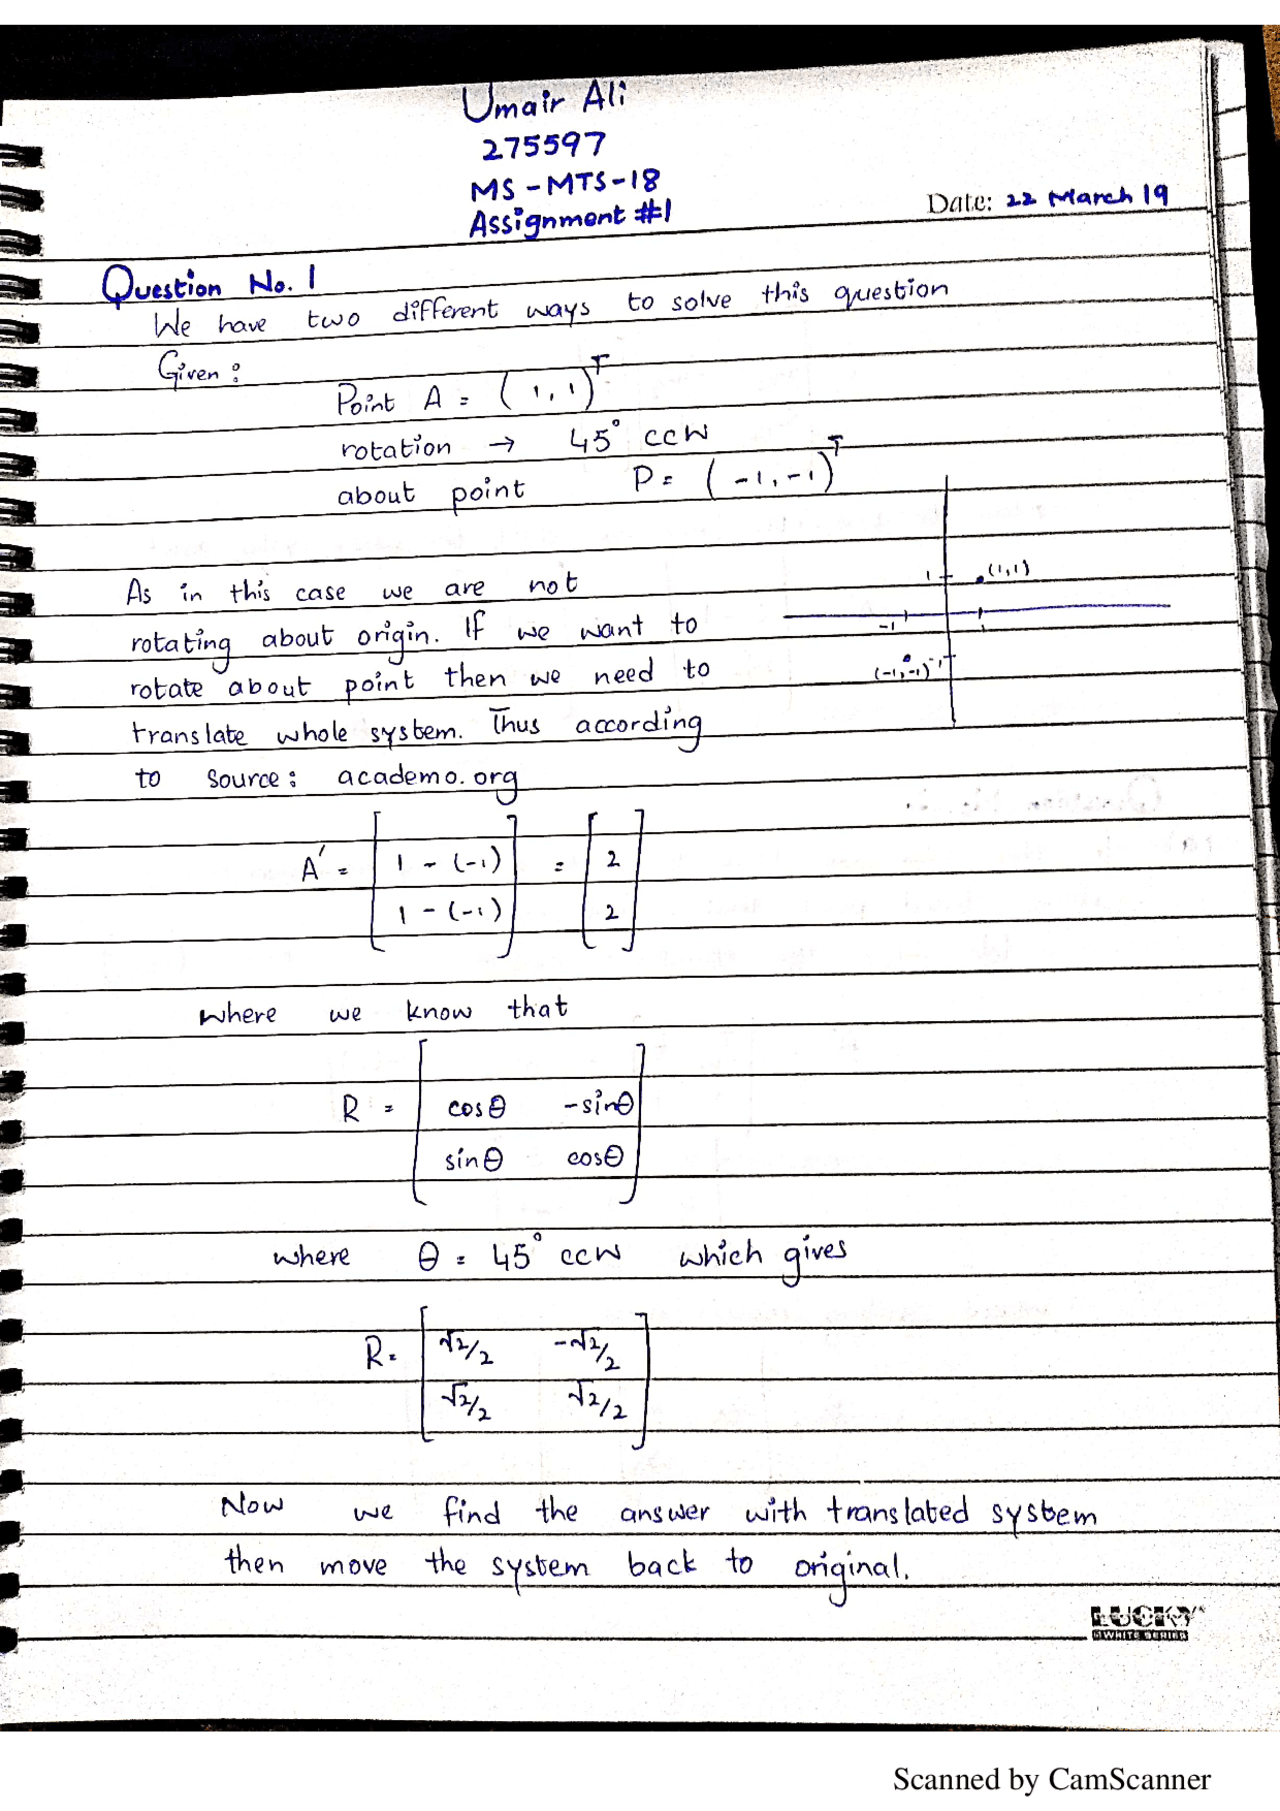 Umair Ali
275597
MS-MTS-18
Assignment #1
Date: 22 March 19
Question No. 1
We have two different ways to solve this question
Given:
Point A = (1, 1)^T
rotation → 45° ccw
about point P = (-1, -1)^T
1 (1,1)
-1 1
(-1,-1) -1
As in this case we are not
rotating about origin. If we want to
rotate about point then we need to
translate whole system. Thus according
to source: academo.org
A' = [1 - (-1)] = [2]
[1 - (-1)] [2]
where we know that
R = [cosθ -sinθ]
[sinθ cosθ]
where θ = 45° ccw which gives
R = [√2/2 -√2/2]
[√2/2 √2/2]
Now we find the answer with translated system
then move the system back to original.
LUCKY
WHITE SERIES
Scanned by CamScanner